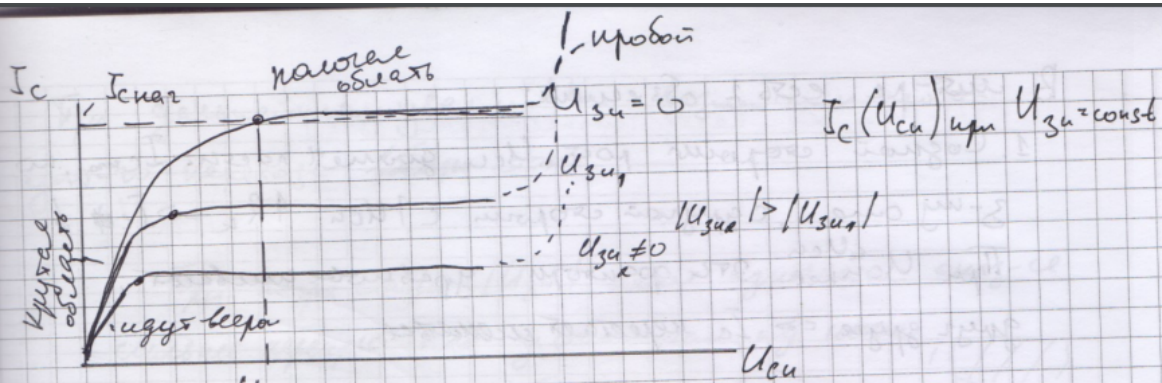 пробой
пологая
область
Iс Iснас
Uзи = 0
Iс (Uси) при Uзи = const
Uзи₁
|Uзи₂| > |Uзи₁|
Uзи₂ ≠ 0
Крутая
область
идут веером
Uси